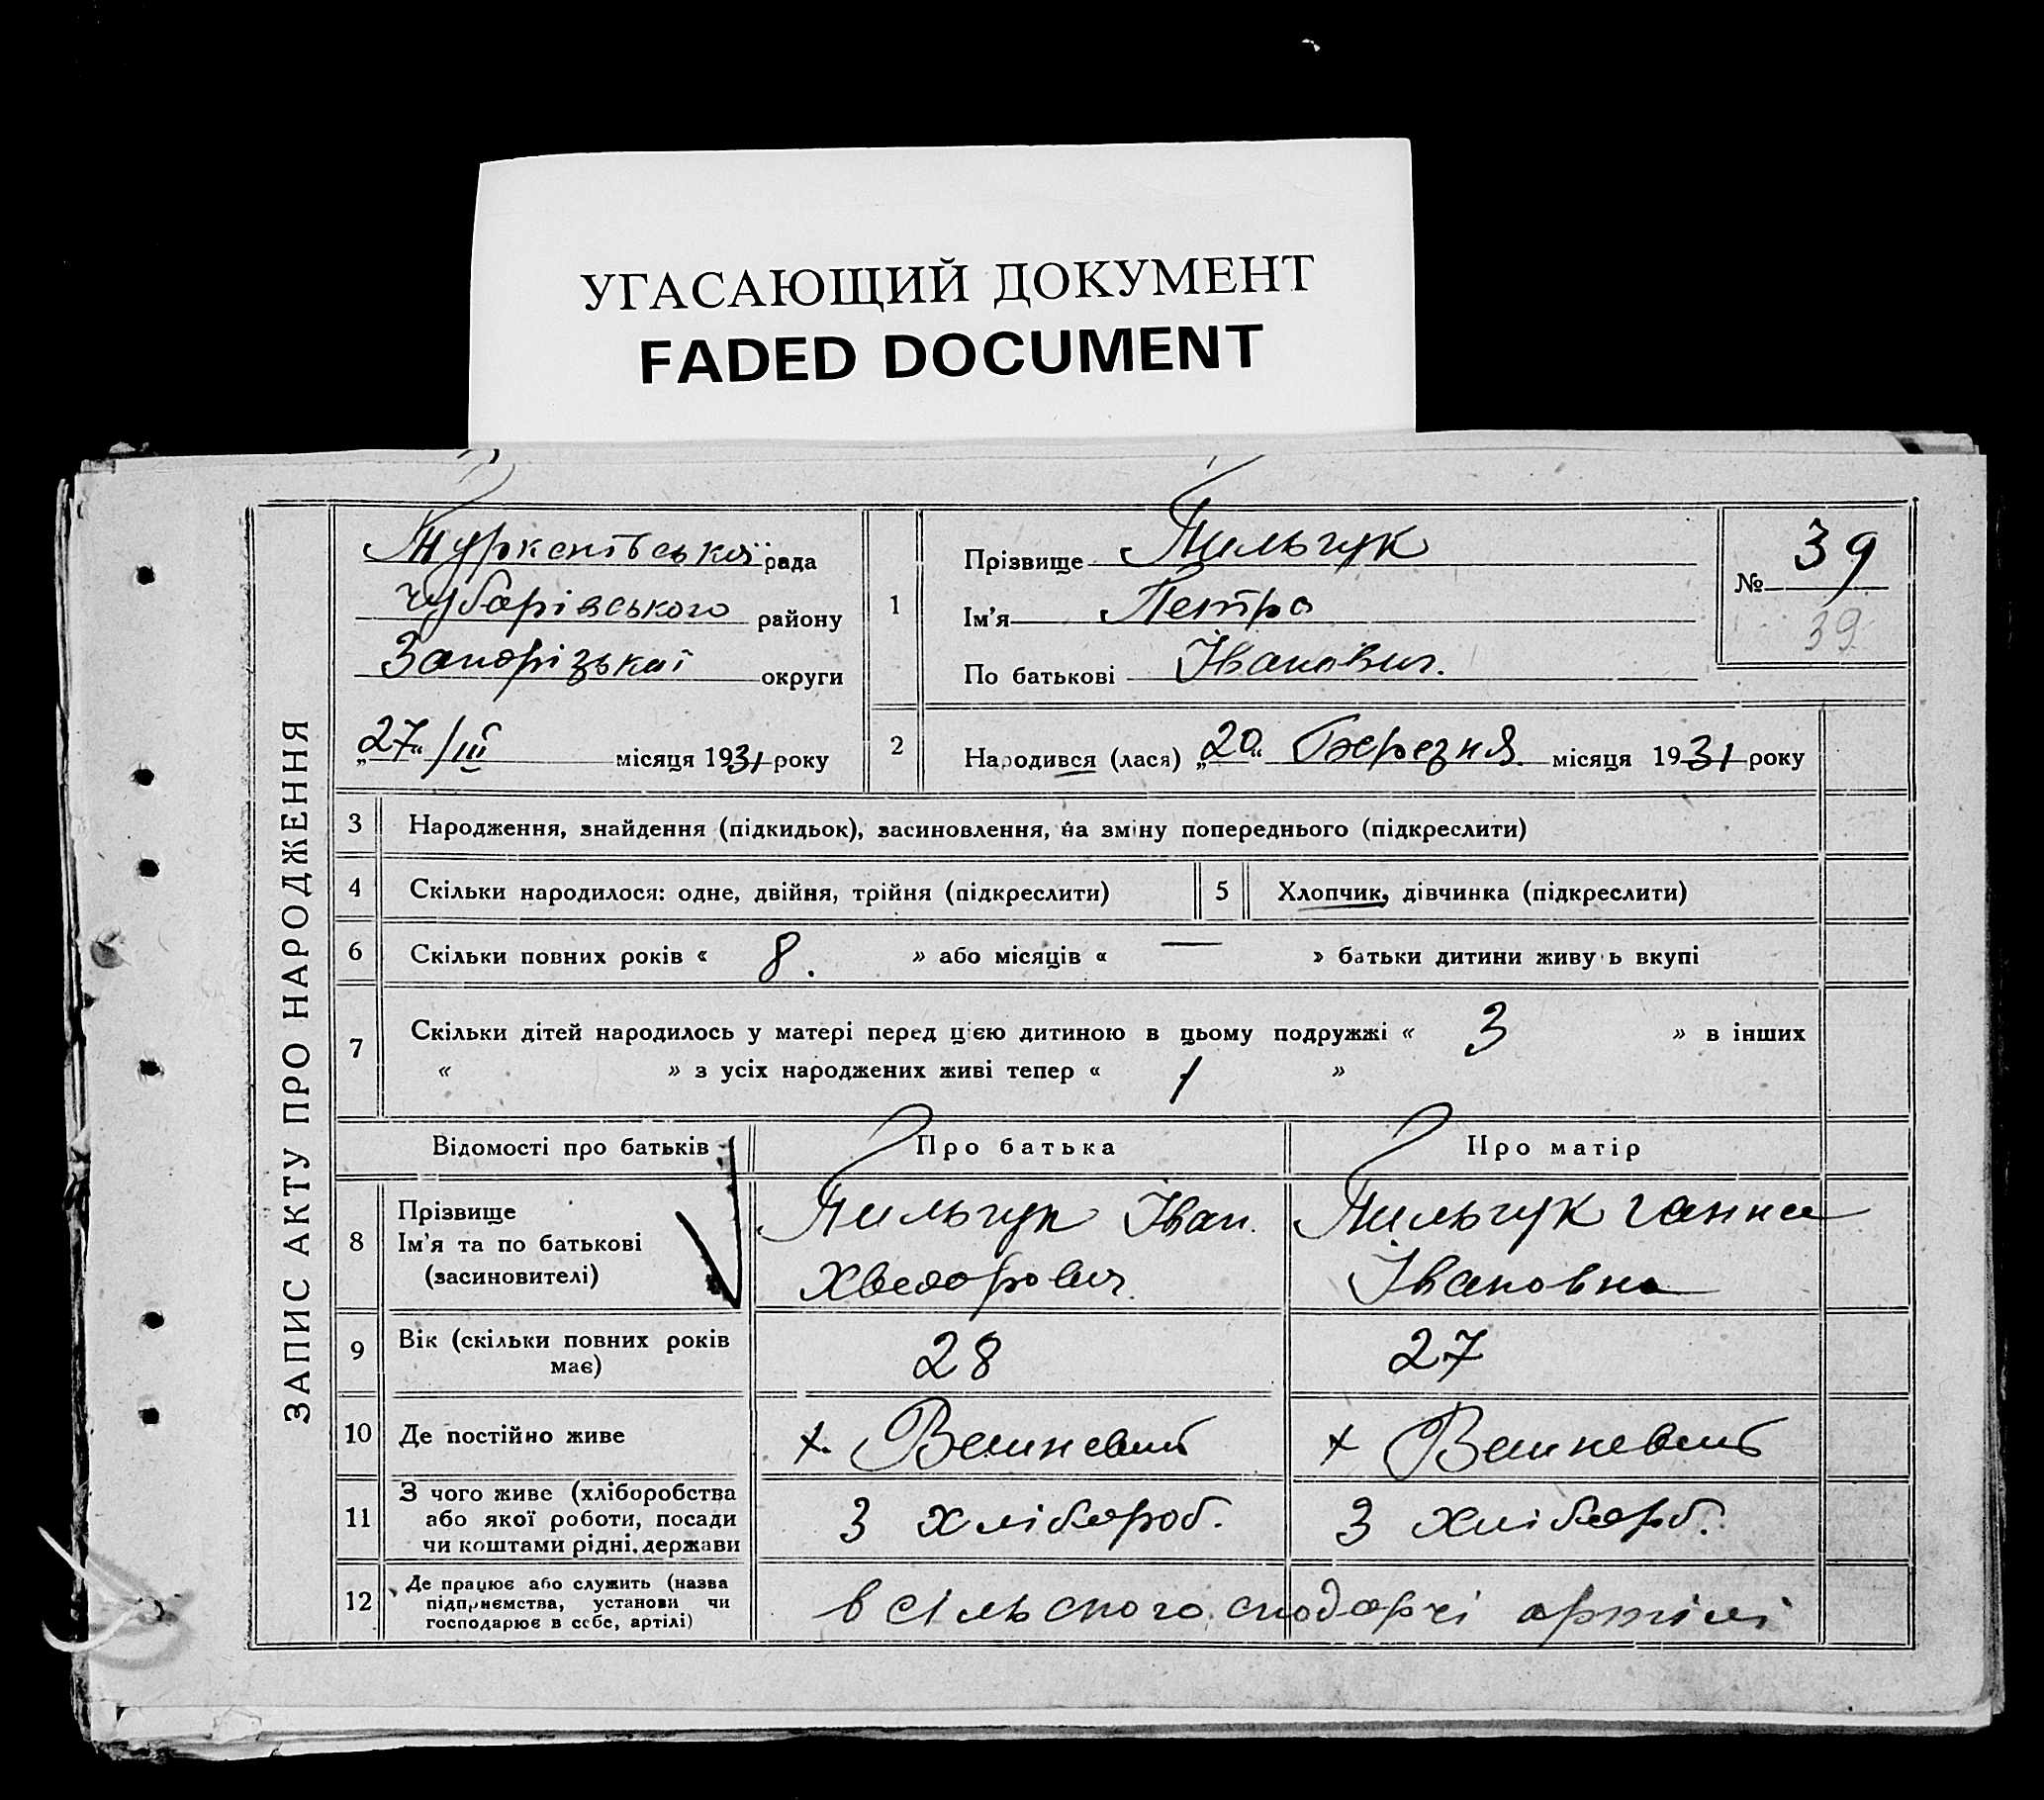 УГАСАЮЩИЙ ДОКУМЕНТ
FADED DOCUMENT
ЗАПИС АКТУ ПРО НАРОДЖЕННЯ
рада
Чубарівського району
Запорізької округи
„27“/III місяця 1931 року
1
Прізвище Пильчук
Ім'я Петро
По батькові Іванович.
№ 39
39
2 Народився (лася) „20“ Березня місяця 1931 року
3 Народження, знайдення (підкидьок), засиновлення, на зміну попереднього (підкреслити)
4 Скільки народилося: одне, двійня, трійня (підкреслити) 5 Хлопчик, дівчинка (підкреслити)
6 Скільки повних років « 8. » або місяців « — » батьки дитини живу ь вкупі
7 Скільки дітей народилось у матері перед цією дитиною в цьому подружжі « 3 » в інших
« » з усіх народжених живі тепер « 1 »
Відомості про батьків Про батька Про матір
8 Прізвище
Ім'я та по батькові
(засиновителі)
Пильчук Іван
Хведорович.
Пильчук Ганна
Івановна
9 Вік (скільки повних років
має)
28 27
10 Де постійно живе х. х
11 З чого живе (хліборобства
або якої роботи, посади
чи коштами рідні, держави
З хлібороб. З хліборб.
12 Де працює або служить (назва
підприємства, установи чи
господарює в себе, артілі)
в сільського сподарчі артілі